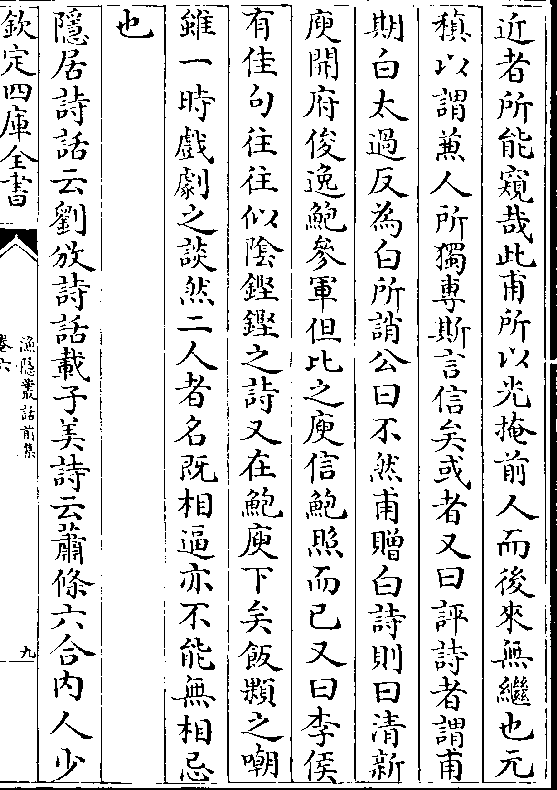 近者所能窺哉此甫所以光掩前人而後來無繼也元
稹以謂兼人所獨専斯言信矣或者又曰評詩者謂甫
期白太過反為白所誚公曰不然甫贈白詩則曰清新
庾開府俊逸鮑參軍但比之庾信鮑照而已又曰李侯
有佳句往往似陰鏗鏗之詩又在鮑庾下矣飯顆之嘲
雖一時戲劇之談然二人者名既相逼亦不能無相忌
也
隱居詩話云劉攽詩話載子美詩云蕭條六合內人少
欽定四庫全書
漁隱叢話前集
卷六
九